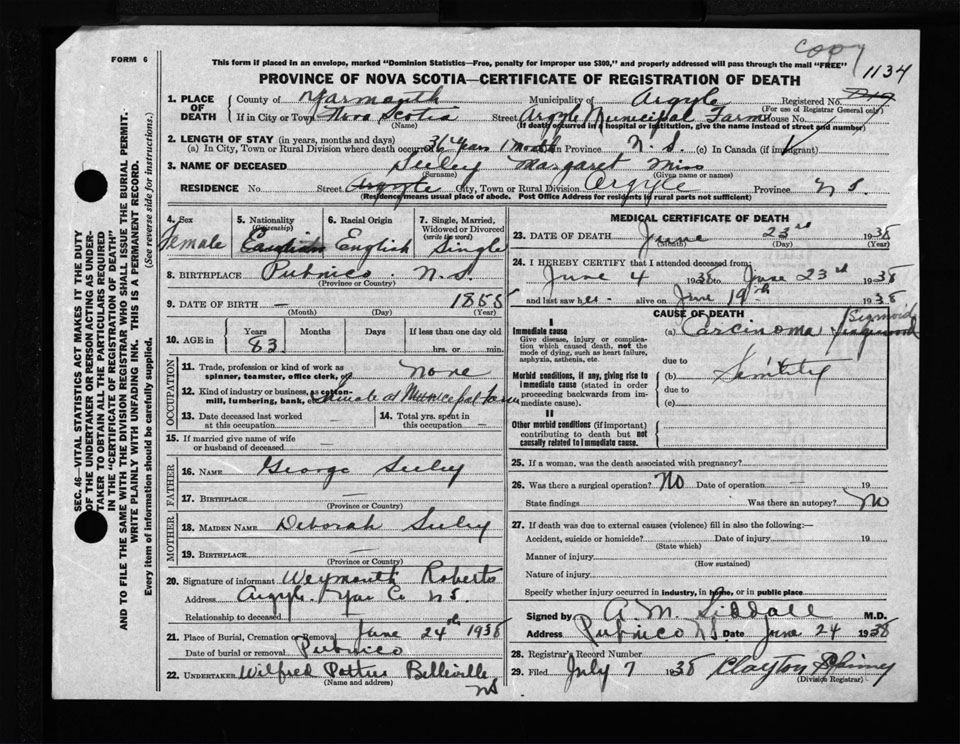 copy
FORM 6
This form if placed in an envelope, marked "Dominion Statistics—Free, penalty for improper use $300," and properly addressed will pass through the mail "FREE"
1134
PROVINCE OF NOVA SCOTIA—CERTIFICATE OF REGISTRATION OF DEATH
1. PLACE OF DEATH
County of Yarmouth Municipality of Argyle Registered No.
(For use of Registrar General only)
If in City or Town Nova Scotia Street Argyle Municipal Farm House No.
(Name) (If death occurred in a hospital or institution, give the name instead of street and number)
2. LENGTH OF STAY (in years, months and days)
(a) In City, Town or Rural Division where death occurred 36 years 1 Month in Province N. S. (c) In Canada (if immigrant)
3. NAME OF DECEASED Seeley Margaret Miss
(Surname) (Given name or names)
RESIDENCE No. Street Argyle City, Town or Rural Division Argyle Province N S.
(Residence means usual place of abode. Post Office Address for residents in rural parts not sufficient)
SEC. 46—VITAL STATISTICS ACT MAKES IT THE DUTY
OF THE UNDERTAKER OR PERSON ACTING AS UNDER-
TAKER TO OBTAIN ALL THE PARTICULARS REQUIRED
IN THE "CERTIFICATE OF REGISTRATION OF DEATH"
AND TO FILE THE SAME WITH THE DIVISION REGISTRAR WHO SHALL ISSUE THE BURIAL PERMIT.
WRITE PLAINLY WITH UNFADING INK. THIS IS A PERMANENT RECORD.
Every item of information should be carefully supplied. (See reverse side for instructions.)
4. Sex 5. Nationality (Citizenship) 6. Racial Origin 7. Single, Married, Widowed or Divorced (write the word)
Female English English Single
8. BIRTHPLACE Pubnico. N.S.
(Province or Country)
9. DATE OF BIRTH — 1855
(Month) (Day) (Year)
10. AGE in Years Months Days If less than one day old
83 hrs. or min.
OCCUPATION
11. Trade, profession or kind of work as spinner, teamster, office clerk, none
12. Kind of industry or business, as cotton-mill, lumbering, bank, Inmate at Municipal Farm
13. Date deceased last worked at this occupation — 14. Total yrs. spent in this occupation —
15. If married give name of wife or husband of deceased —
FATHER
16. Name George Seeley
17. Birthplace —
(Province or Country)
MOTHER
18. Maiden Name Deborah Seeley
19. Birthplace —
(Province or Country)
20. Signature of informant Weymouth Roberts
Address Argyle. Yar Co NS.
Relationship to deceased
21. Place of Burial, Cremation or Removal June 24th 1938
Date of burial or removal Pubnico
22. UNDERTAKER Wilfred Pottier Belleville
(Name and address) NS
MEDICAL CERTIFICATE OF DEATH
23. DATE OF DEATH June 23rd 1938
(Month) (Day) (Year)
24. I HEREBY CERTIFY that I attended deceased from:
June 4 1938 to June 23rd 1938
and last saw her alive on June 19th 1938
CAUSE OF DEATH
I
Immediate cause (a) Carcinoma Sigmoid
Give disease, injury or complica-
tion which caused death, not the
mode of dying, such as heart failure,
asphyxia, asthenia, etc.
due to
Morbid conditions, if any, giving rise to (b) Senility
immediate cause (stated in order due to
proceeding backwards from im- (c)
mediate cause).
II
Other morbid conditions (if important)
contributing to death but not
causally related to immediate cause.
25. If a woman, was the death associated with pregnancy?
26. Was there a surgical operation? No Date of operation 19
State findings Was there an autopsy? No
27. If death was due to external causes (violence) fill in also the following:—
Accident, suicide or homicide? Date of injury 19
(State which)
Manner of injury
(How sustained)
Nature of injury
Specify whether injury occurred in industry, in home, or in public place
Signed by A. M. Siddall M.D.
Address Pubnico N.S. Date June 24 1938
28. Registrar's Record Number
29. Filed July 7 1938 Clayton
(Division Registrar)